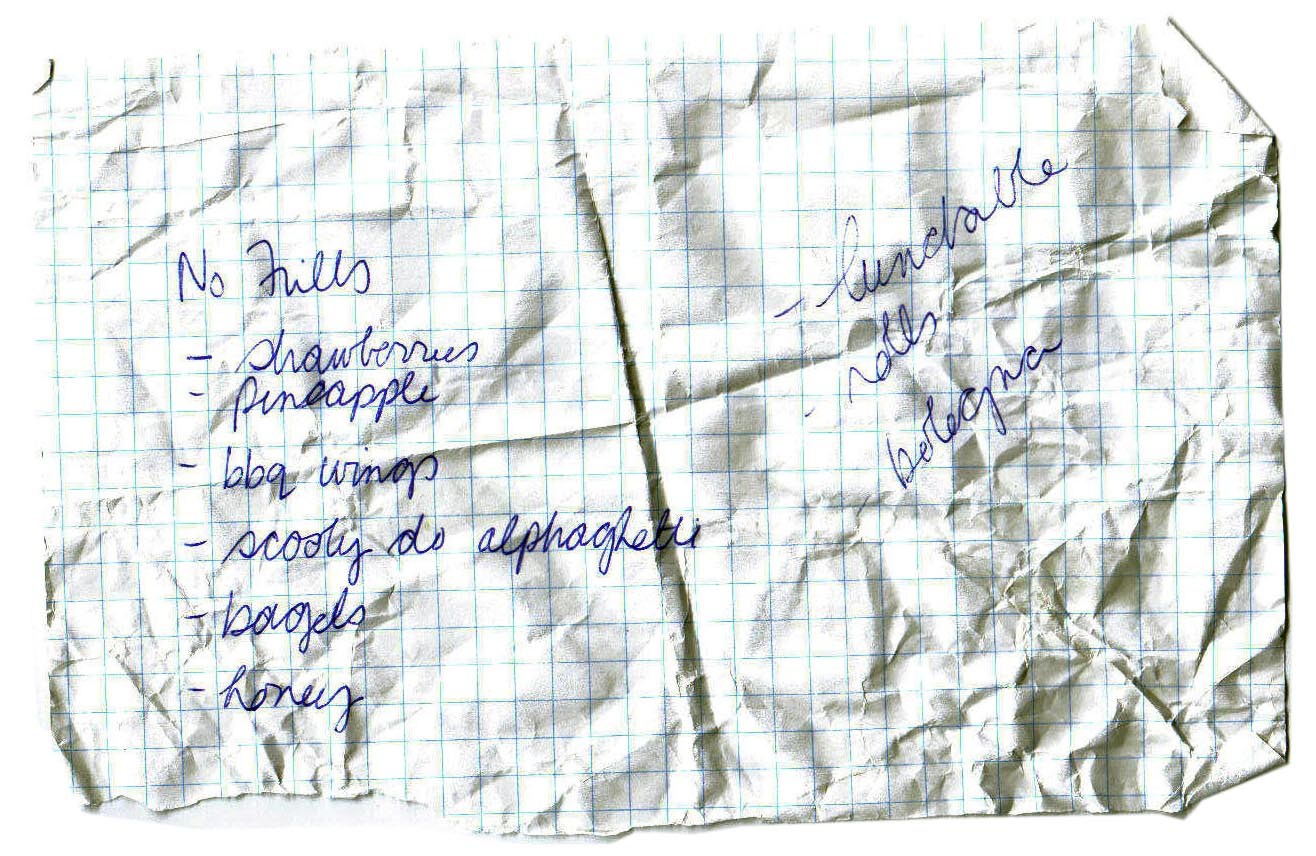 No Frills
- strawberries
- pineapple
- bbq wings
- scooby do alphaghetti
- bagels
- honey
- lunchable
- rolls
bologna